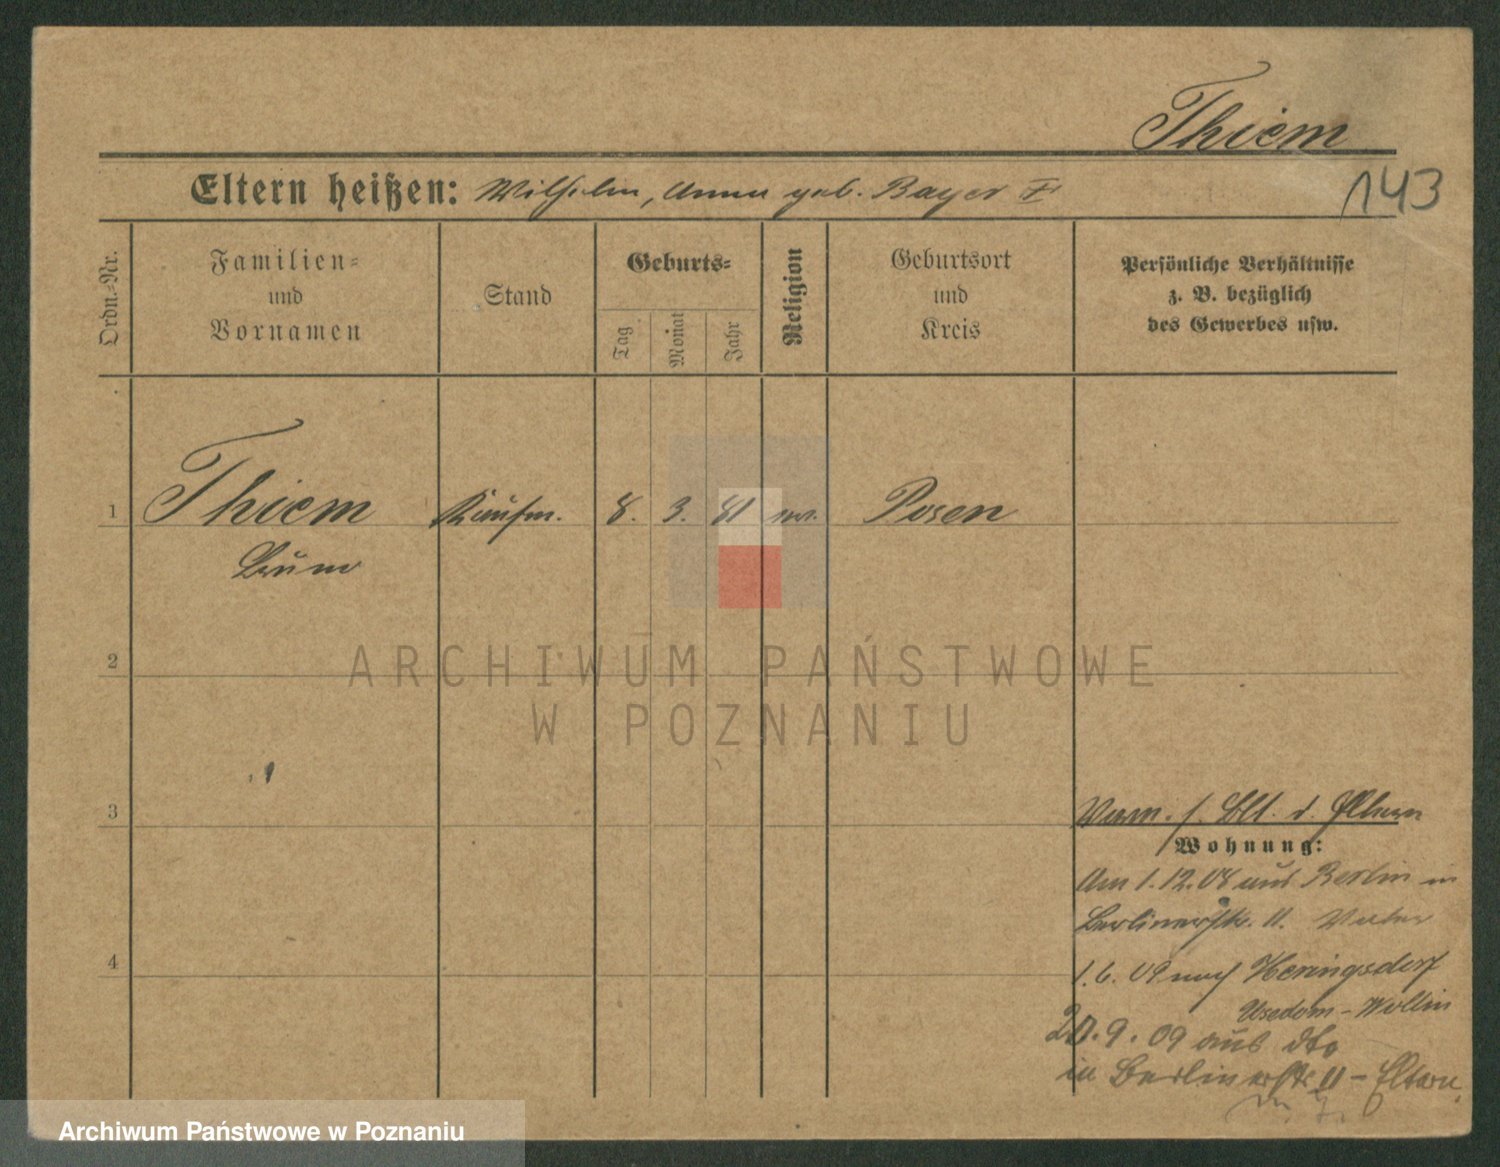 Thiem
143
Eltern heißen: Wilhelm, Anna geb. Bayer
Ordn.-Nr.
Familien-
und
Vornamen
Stand
Geburts-
Tag
Monat
Jahr
Religion
Geburtsort
und
Kreis
Persönliche Verhältnisse
z. B. bezüglich
des Gewerbes usw.
1 Thiem Kaufm. 8. 3. 81 ev. Posen
Bruno
2
ARCHIWUM PAŃSTWOWE
W POZNANIU
3
Verm. s. Bl. d. Eltern
Wohnung:
Am 1.12.08 aus Berlin in
Berlinerstr. 11. Vater
4
1.6.09 nach Heringsdorf
Usedom-Wollin
20.9.09 aus dto
in Berlinerstr 11 - Eltern
Archiwum Państwowe w Poznaniu